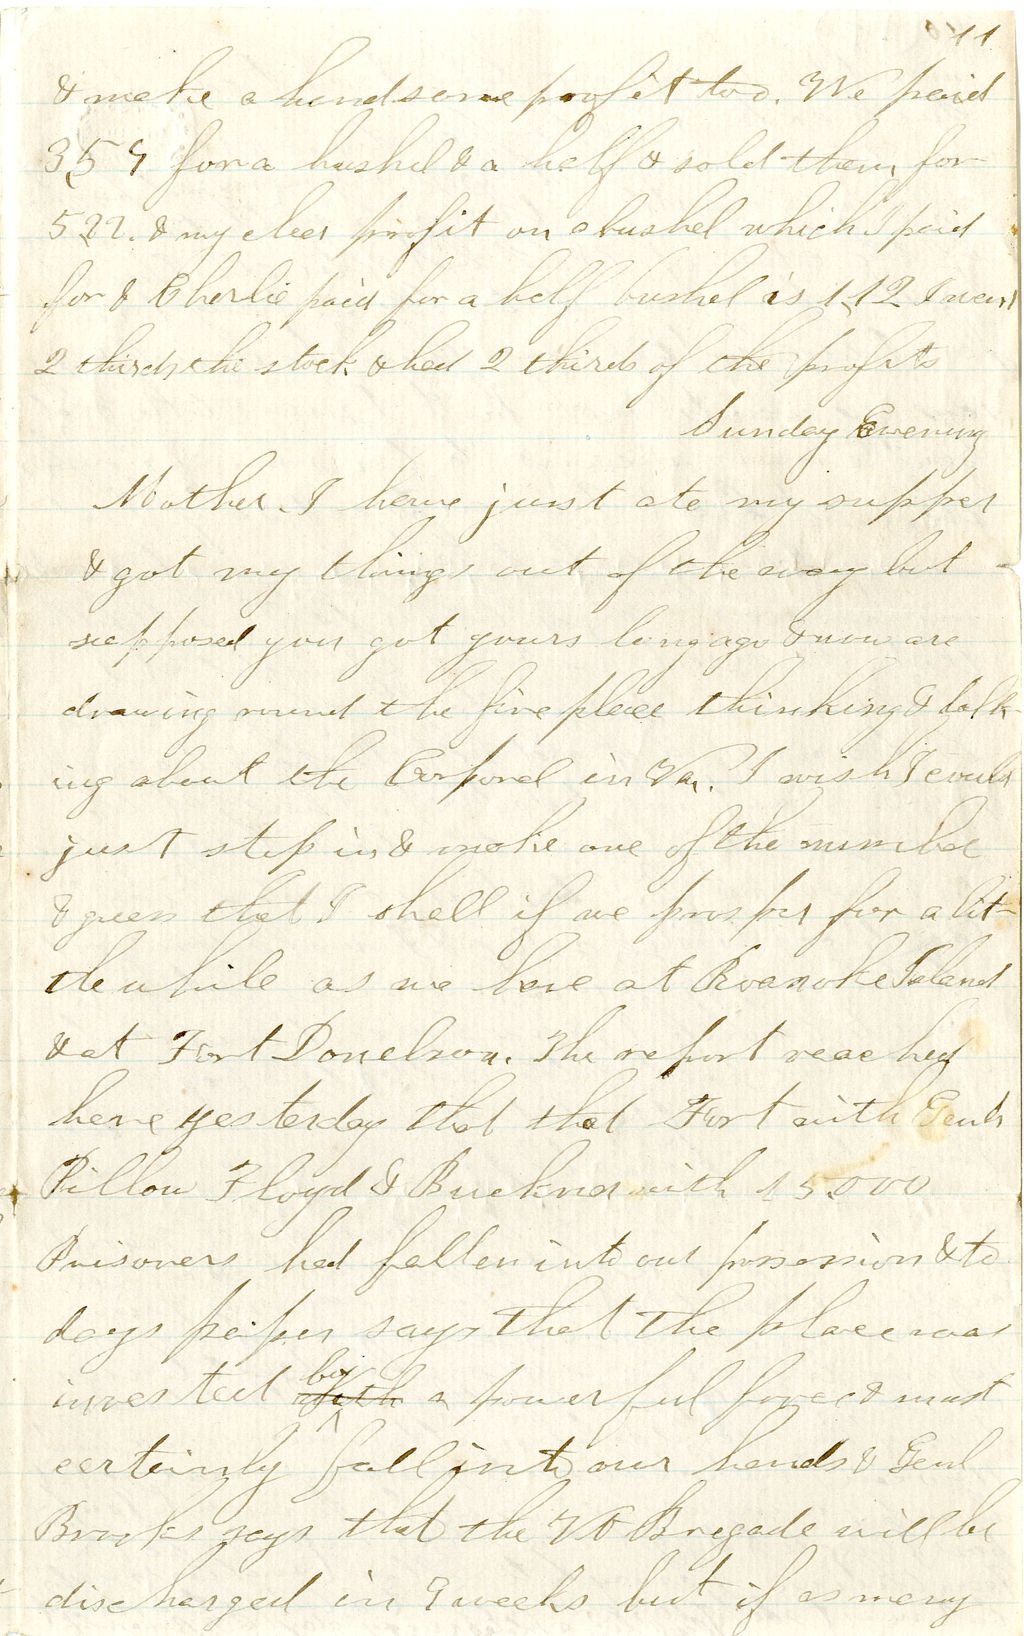 11
& make a handsome profit too. We paid
354 for a bushel & a half & sold them for
522. & my clear profit on a bushel which I paid
for & Charlie paid for a half bushel is 1.12 I
2 thirds the stock & had 2 thirds of the profits
Sunday Evening
Mother. I have just ate my supper
& got my things out of the way but
supposed you got yours long ago & now are
drawing round the fire place thinking & talk-
ing about the Corporel in Va. I wish I could
just step in & make one of the number
& guess that I shall if we prosper for a lit-
tle while as we have at Roanoke Island
& at Fort Donelson. The report reached
here yesterday that that Fort with Genls
Pillow Floyd & Buckner with 15.000
Prisoners had fallen into our possession & to
days paper says that the place was
invested by with a powerful force & must
certainly fall into our hands & Genl
Brooks says that the Vt Bregade will be
discharged in 9 weeks but if as many